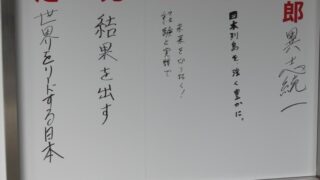 郎
異志統一
日本列島を、強く豊かに。
未来を切り拓く!
経験と実績で
結果を出す
世界をリードする日本